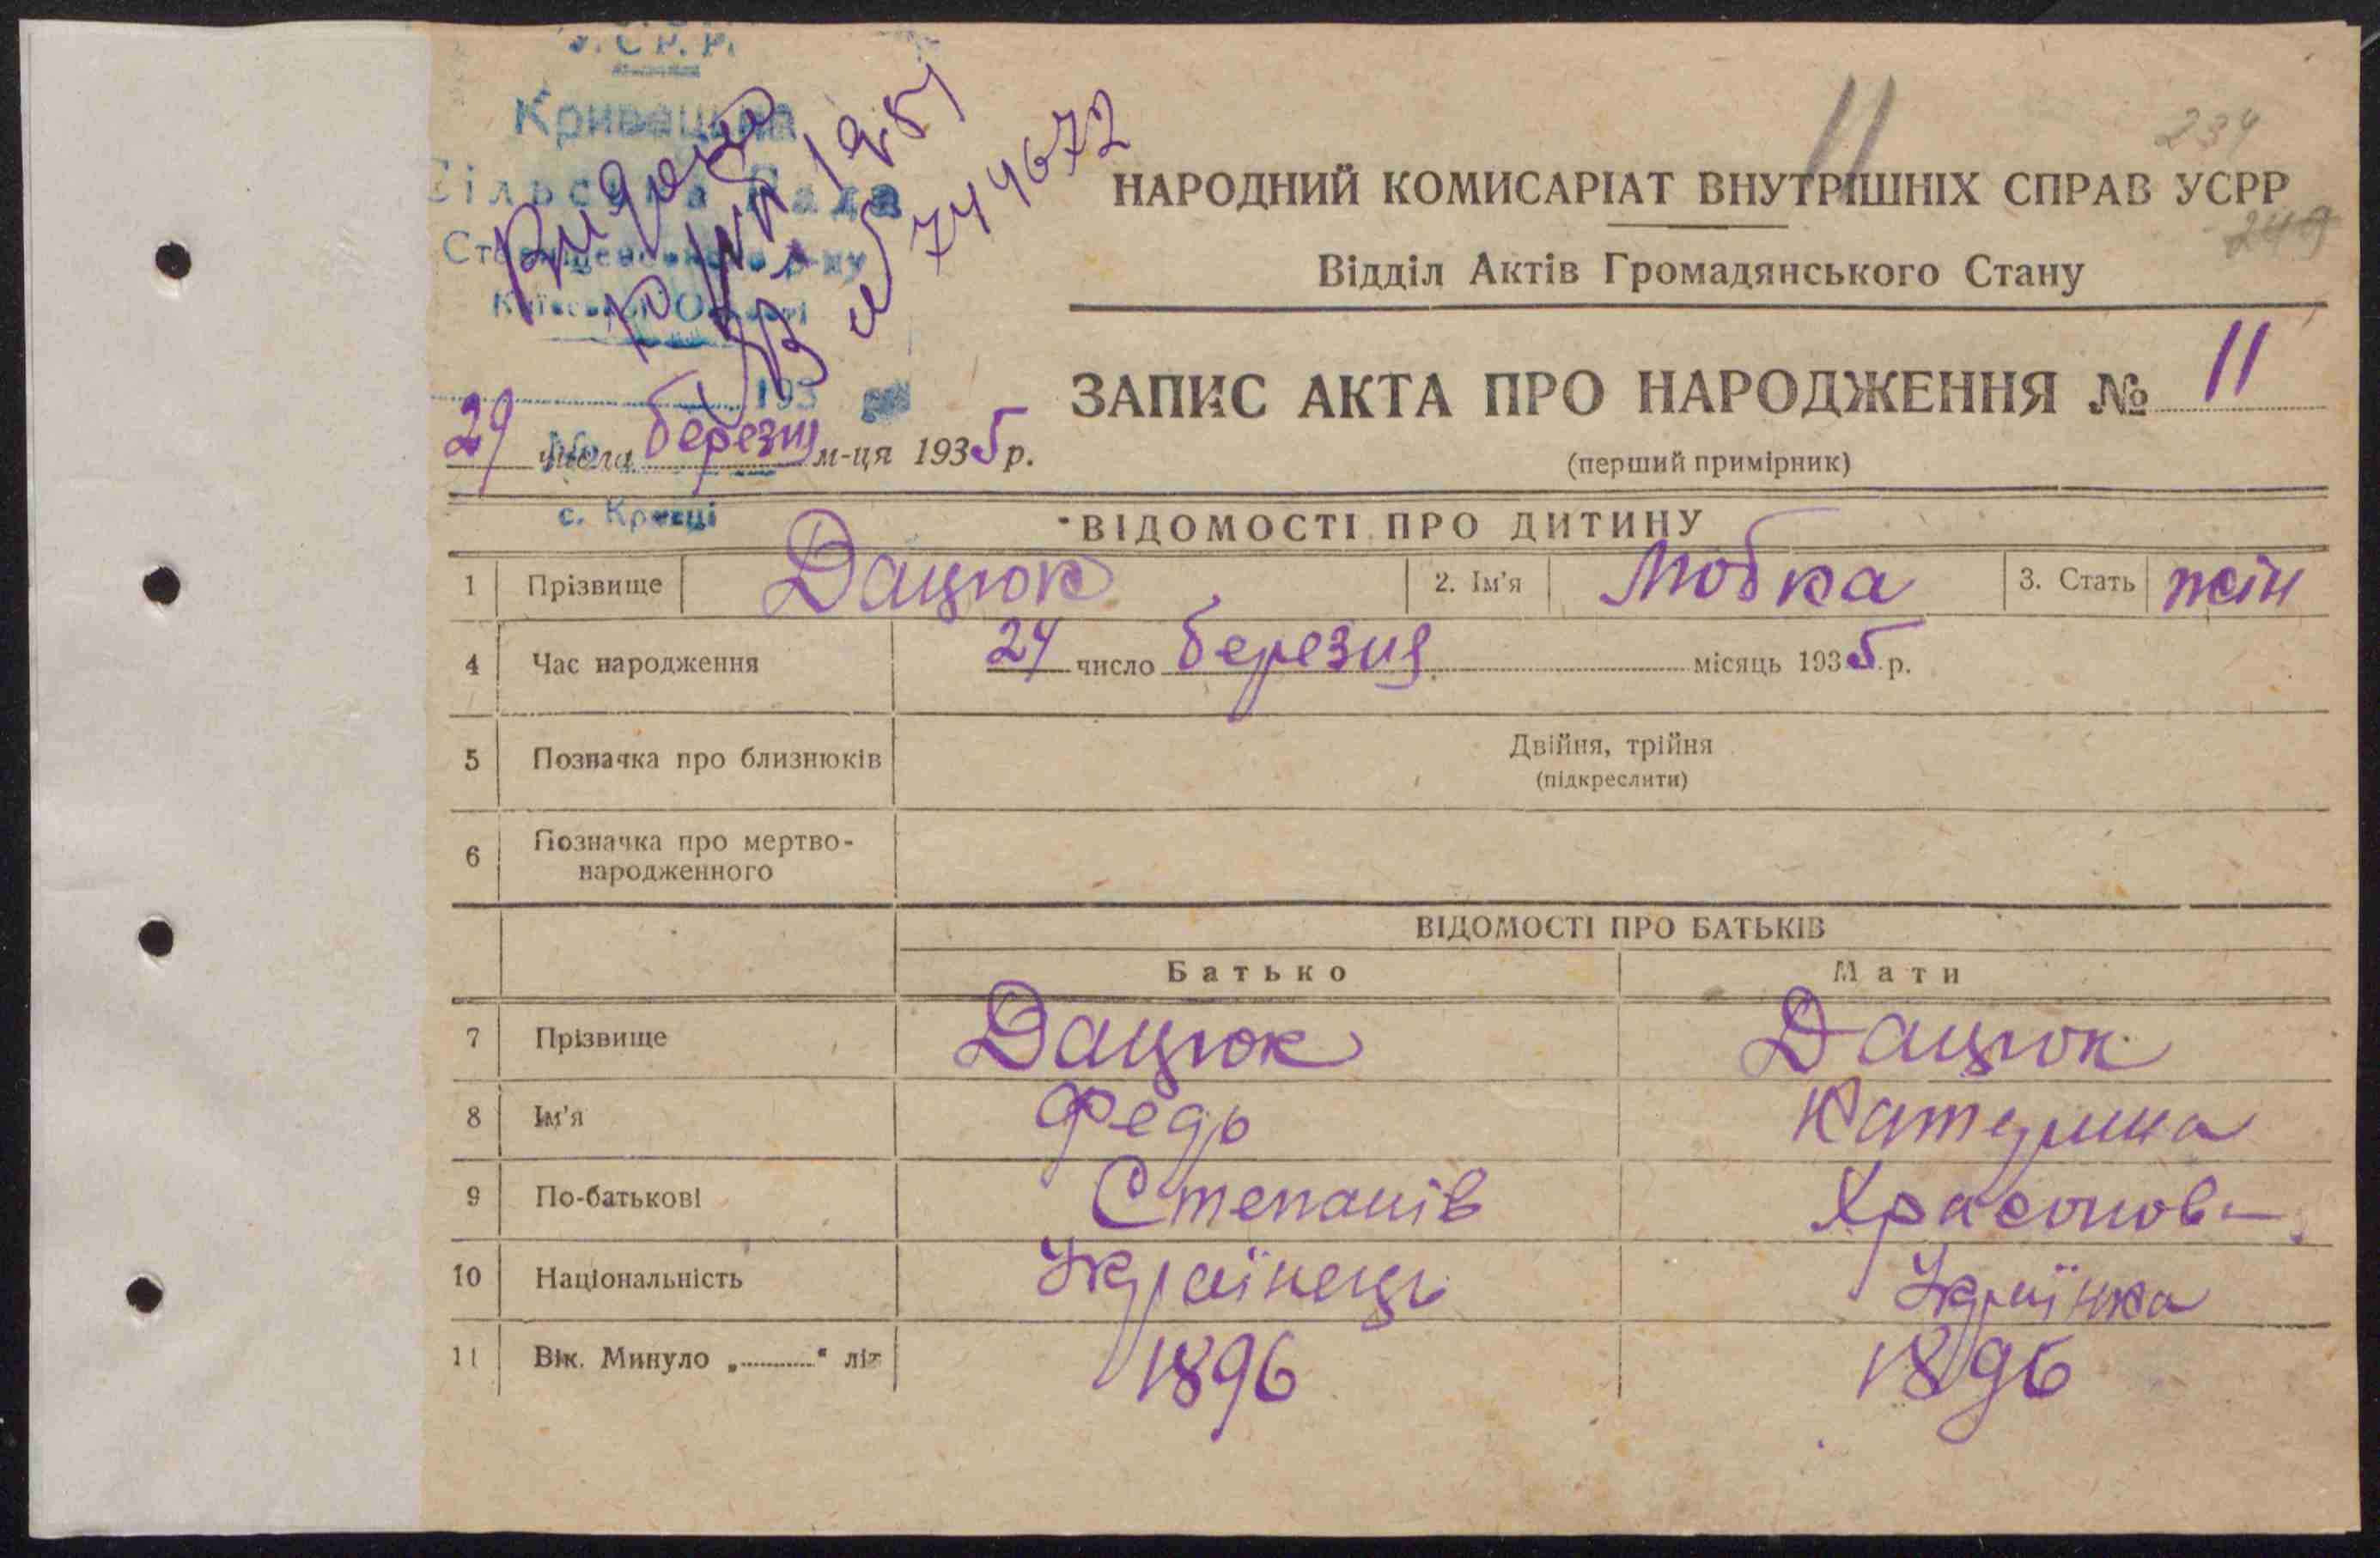 У.С.Р.Р.
Кривецька
Сільська Рада
Київської Області
193
с. Кривці
1951
744672
11
234
249
НАРОДНИЙ КОМИСАРІАТ ВНУТРІШНІХ СПРАВ УСРР
Відділ Актів Громадянського Стану
ЗАПИС АКТА ПРО НАРОДЖЕННЯ № 11
(перший примірник)
29 числа березня м-ця 1935 р.
ВІДОМОСТІ ПРО ДИТИНУ
1 Прізвище Дацюк 2. Ім'я Любка 3. Стать жін
4 Час народження 24 число березня місяць 1935 р.
5 Позначка про близнюків Двійня, трійня
(підкреслити)
6 Позначка про мертво-
народженного
ВІДОМОСТІ ПРО БАТЬКІВ
Батько Мати
7 Прізвище Дацюк Дацюк
8 Ім'я Федь Катерина
9 По-батькові Степанів
10 Національність Українець Українка
11 Вік. Минуло „ “ літ 1896 1896